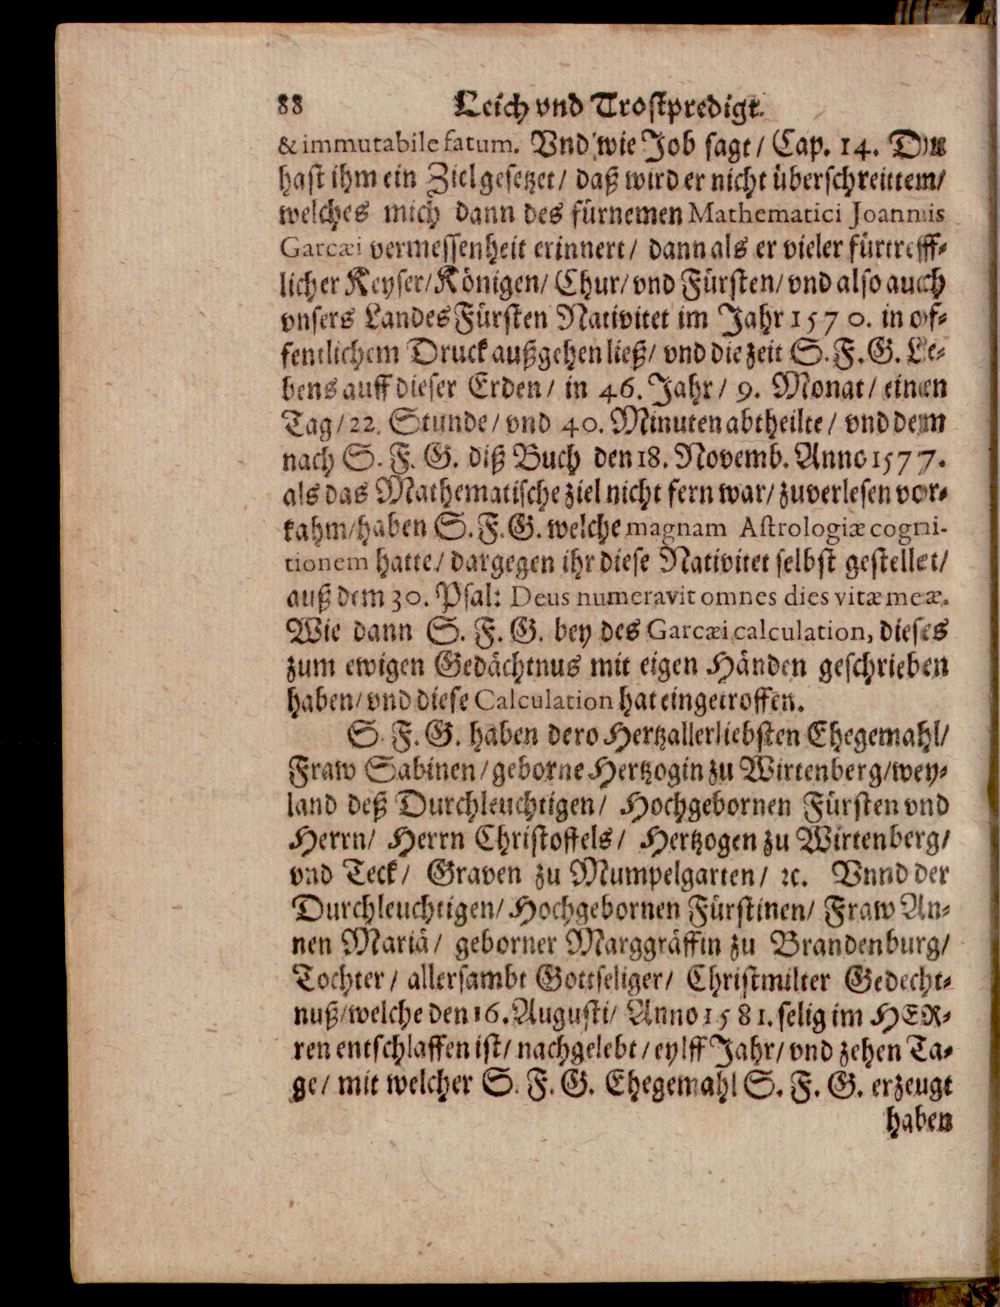 88 Leich vnd Trostpredigt.
& immutabile fatum. Vnd wie Job sagt / Cap. 14. Du
hast ihm ein Ziel gesetzet / daß wird er nicht überschreittem /
welches mich dann des fürnemen Mathematici Joannis
Garcæi vermessenheit erinnert / dann als er vieler fürtreff⸗
licher Keyser / Königen / Chur / vnd Fürsten / vnd also auch
vnsers Landes Fürsten Nativitet im Jahr 1570. in of⸗
fentlichem Druck außgehen ließ / vnd die zeit S. F. G. Le⸗
bens auff dieser Erden / in 46. Jahr / 9. Monat / einen
Tag / 22. Stunde / vnd 40. Minuten abtheilte / vnd dem
nach S. F. G. diß Buch den 18. Novemb. Anno 1577.
als das Mathematische ziel nicht fern war / zuverlesen vor⸗
kahm / haben S. F. G. welche magnam Astrologiæ cogni-
tionem hatte / dargegen ihr diese Nativitet selbst gestellet /
auß dem 30. Psal: Deus numeravit omnes dies vitæ meæ.
Wie dann S. F. G. bey des Garcæi calculation, dieses
zum ewigen Gedächtnus mit eigen Händen geschrieben
haben / vnd diese Calculation hat eingetroffen.
S. F. G. haben dero Hertzallerliebsten Ehegemahl /
Fraw Sabinen / geborne Hertzogin zu Wirtenberg / wey⸗
land deß Durchleuchtigen / Hochgebornen Fürsten vnd
Herrn / Herrn Christoffels / Hertzogen zu Wirtenberg /
vnd Teck / Graven zu Mumpelgarten / ꝛc. Vnnd der
Durchleuchtigen / Hochgebornen Fürstinen / Fraw An⸗
nen Mariä / geborner Marggräffin zu Brandenburg /
Tochter / allersambt Gottseliger / Christmilter Gedecht⸗
nuß / welche den 16. Augusti / Anno 1581. selig im HER⸗
ren entschlaffen ist / nachgelebt / eylff Jahr / vnd zehen Ta⸗
ge / mit welcher S. F. G. Ehegemahl S. F. G. erzeugt
haben